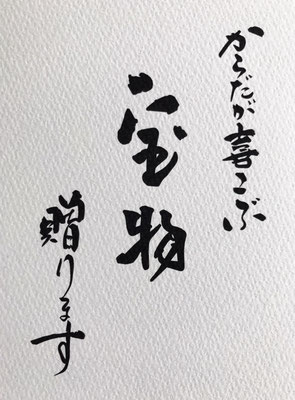 からだが喜こぶ
宝物
贈ります